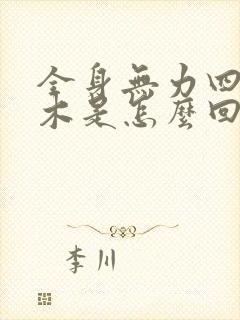 全身無力四
木是怎麼回
李川